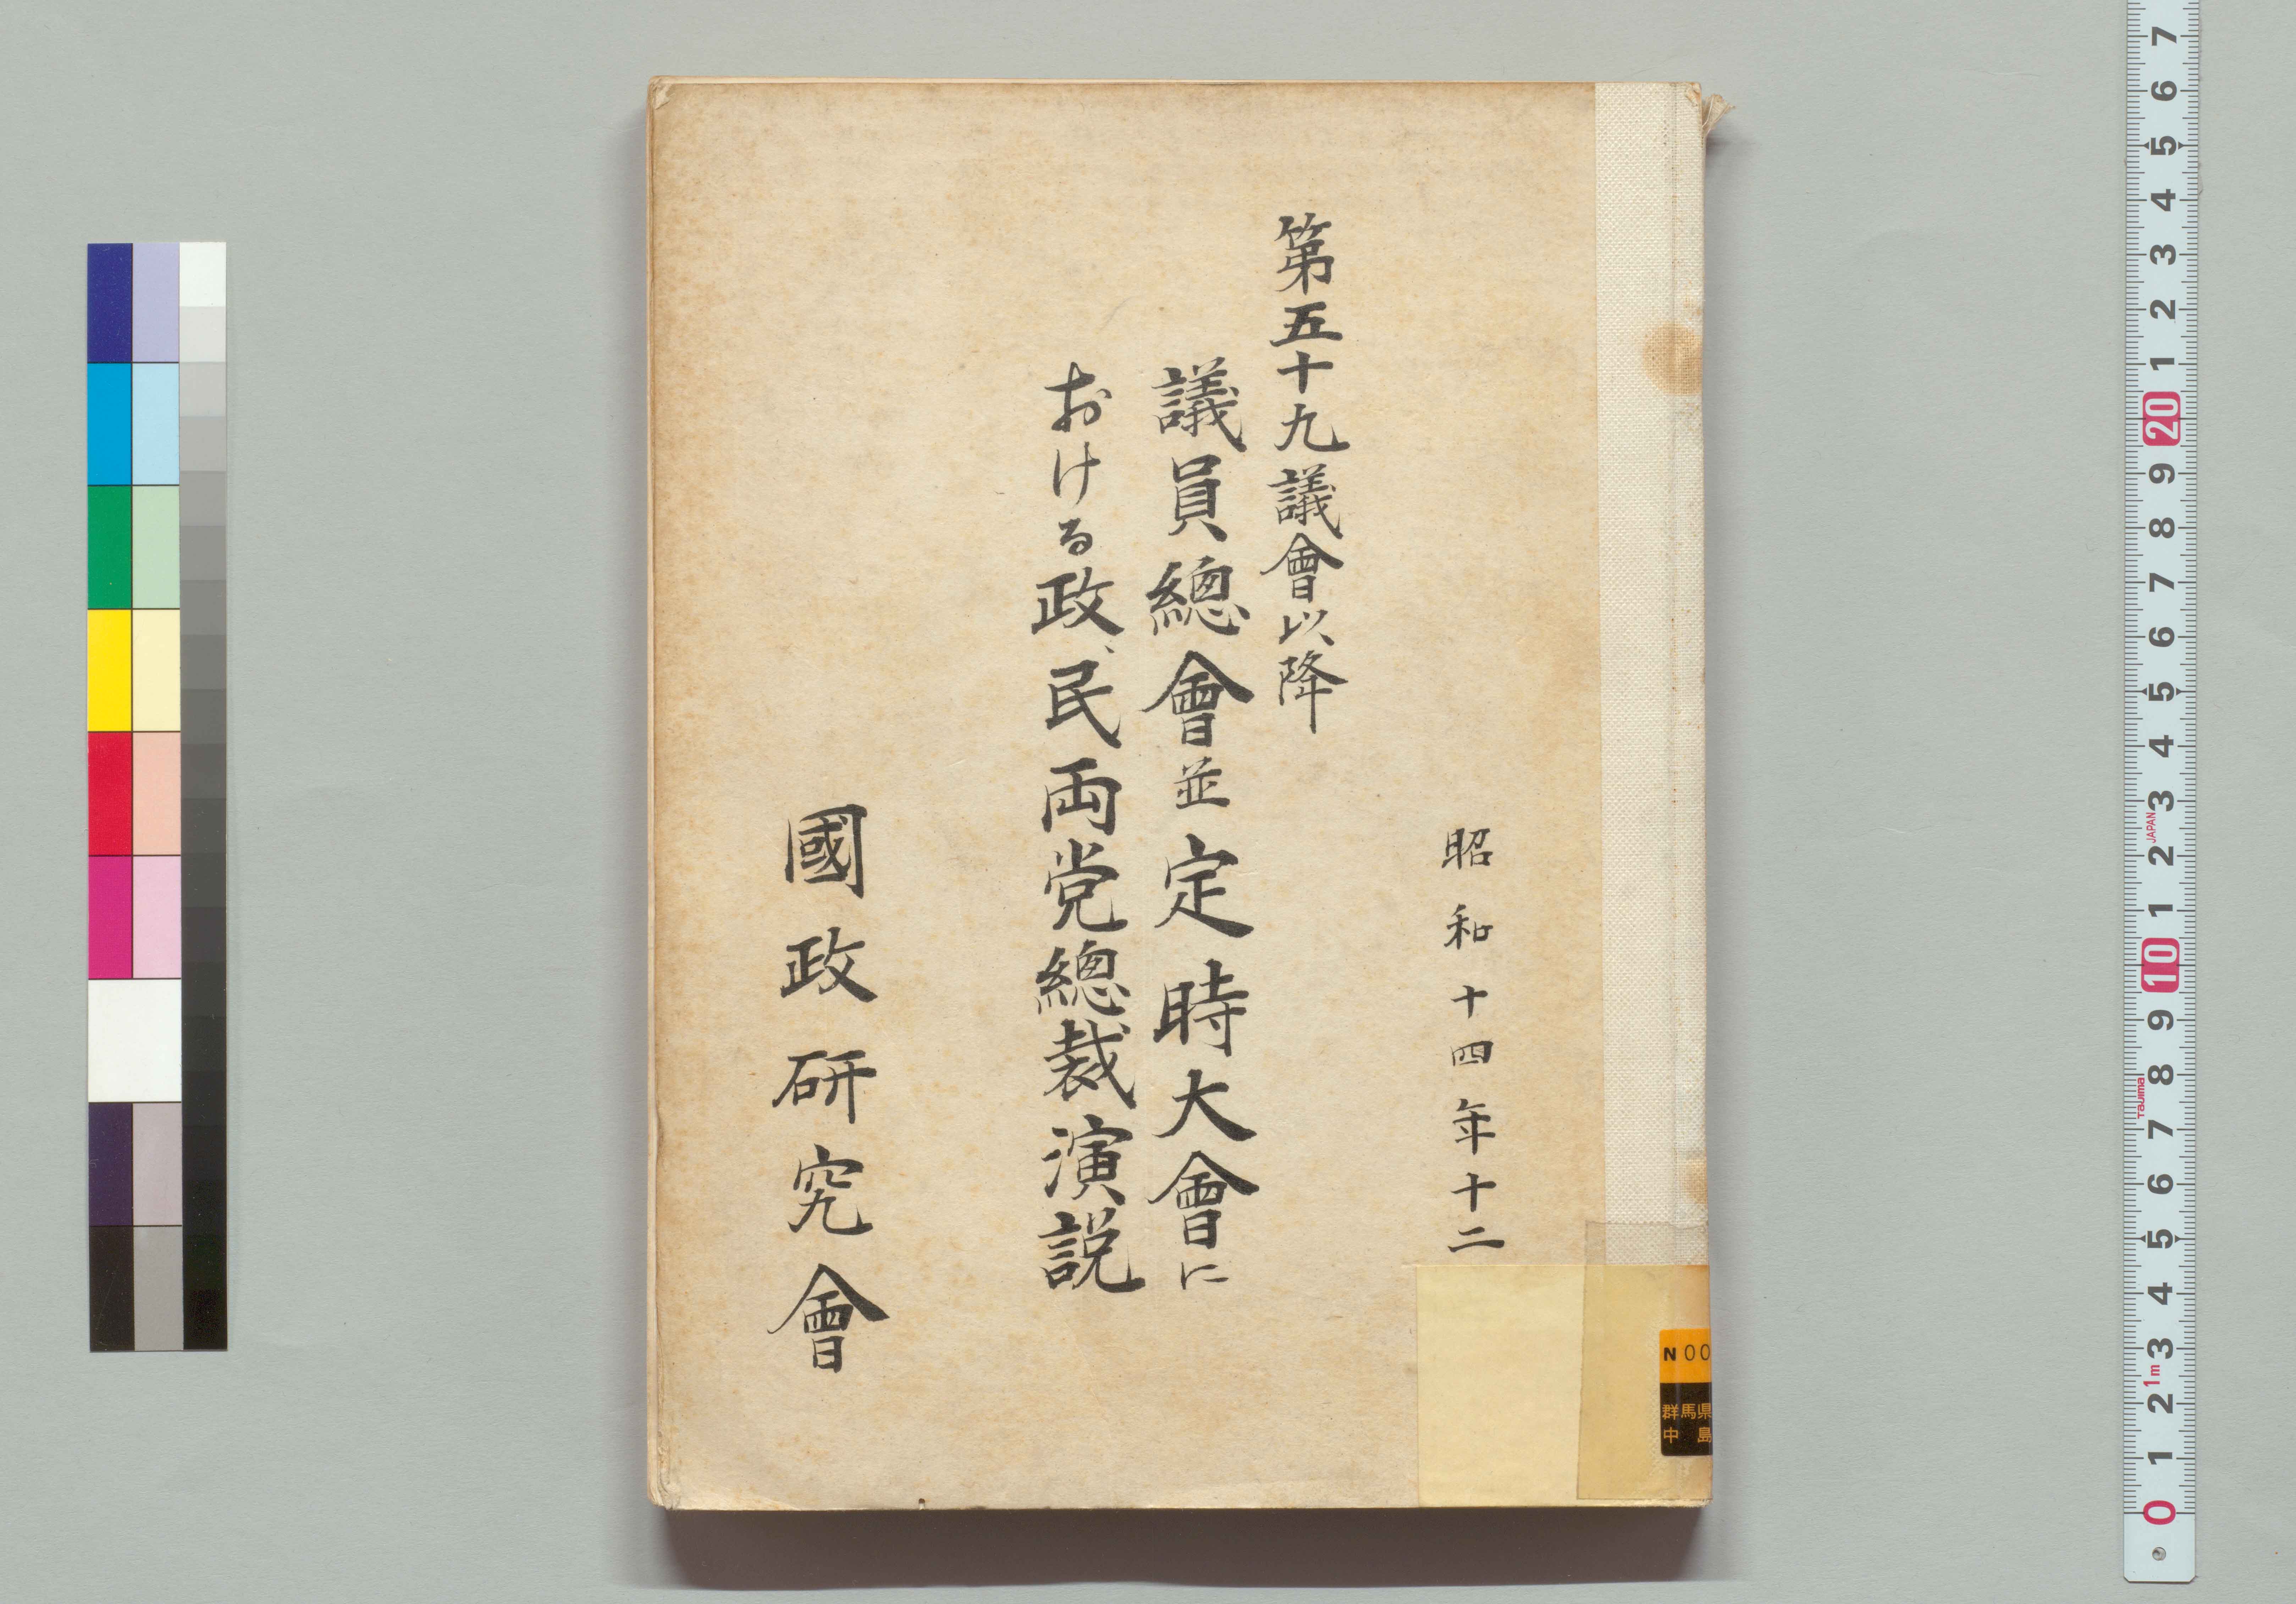 昭和十四年十二
第五十九議會以降
議員總會並定時大會に
おける政、民両党總裁演説
國政研究會
N00
群馬県
中島
7
6
5
4
3
2
1
20
9
8
7
6
5
4
3
JAPAN
2
1
10
9
8
Tajima
7
6
5
4
3
1m
2
1
0